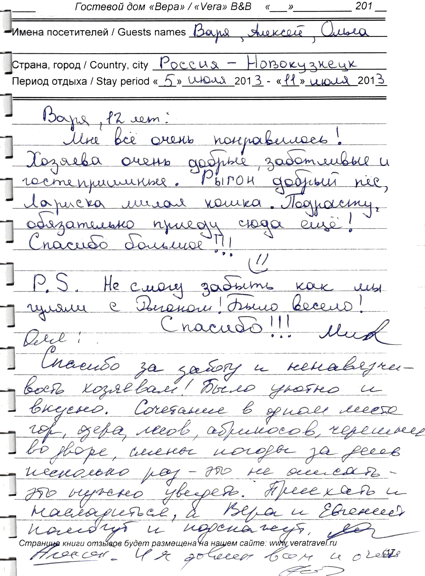 Гостевой дом «Вера» / «Vera» B&B «___»____________ 201__
Имена посетителей / Guests names Варя, Алексей, Ольга
Страна, город / Country, city Россия – Новокузнецк
Период отдыха / Stay period «5» июля 2013 - «11» июля 2013
Варя, 12 лет:
Мне всё очень понравилось!
Хозяева очень добрые, заботливые и
гостеприимные. Рыгон добрый пёс,
Лариска милая кошка. Подрасту,
обязательно приеду сюда ещё!
Спасибо большое!!!
P.S. Не смогу забыть как мы
гуляли с Рыгоном! Было весело!
Спасибо!!!
Оля:
Спасибо за заботу и ненавязчи-
вость хозяевам! Было уютно и
вкусно. Сочетание в одном месте
гор, озера, лесов, абрикосов, черешни
во дворе, смены погоды за день
несколько раз – это не описать –
это нужно увидеть. Приехать и
насладиться, а Вера и Евгений
помогут и подскажут.
Страница книги отзывов будет размещена на нашем сайте: www.veratravel.ru